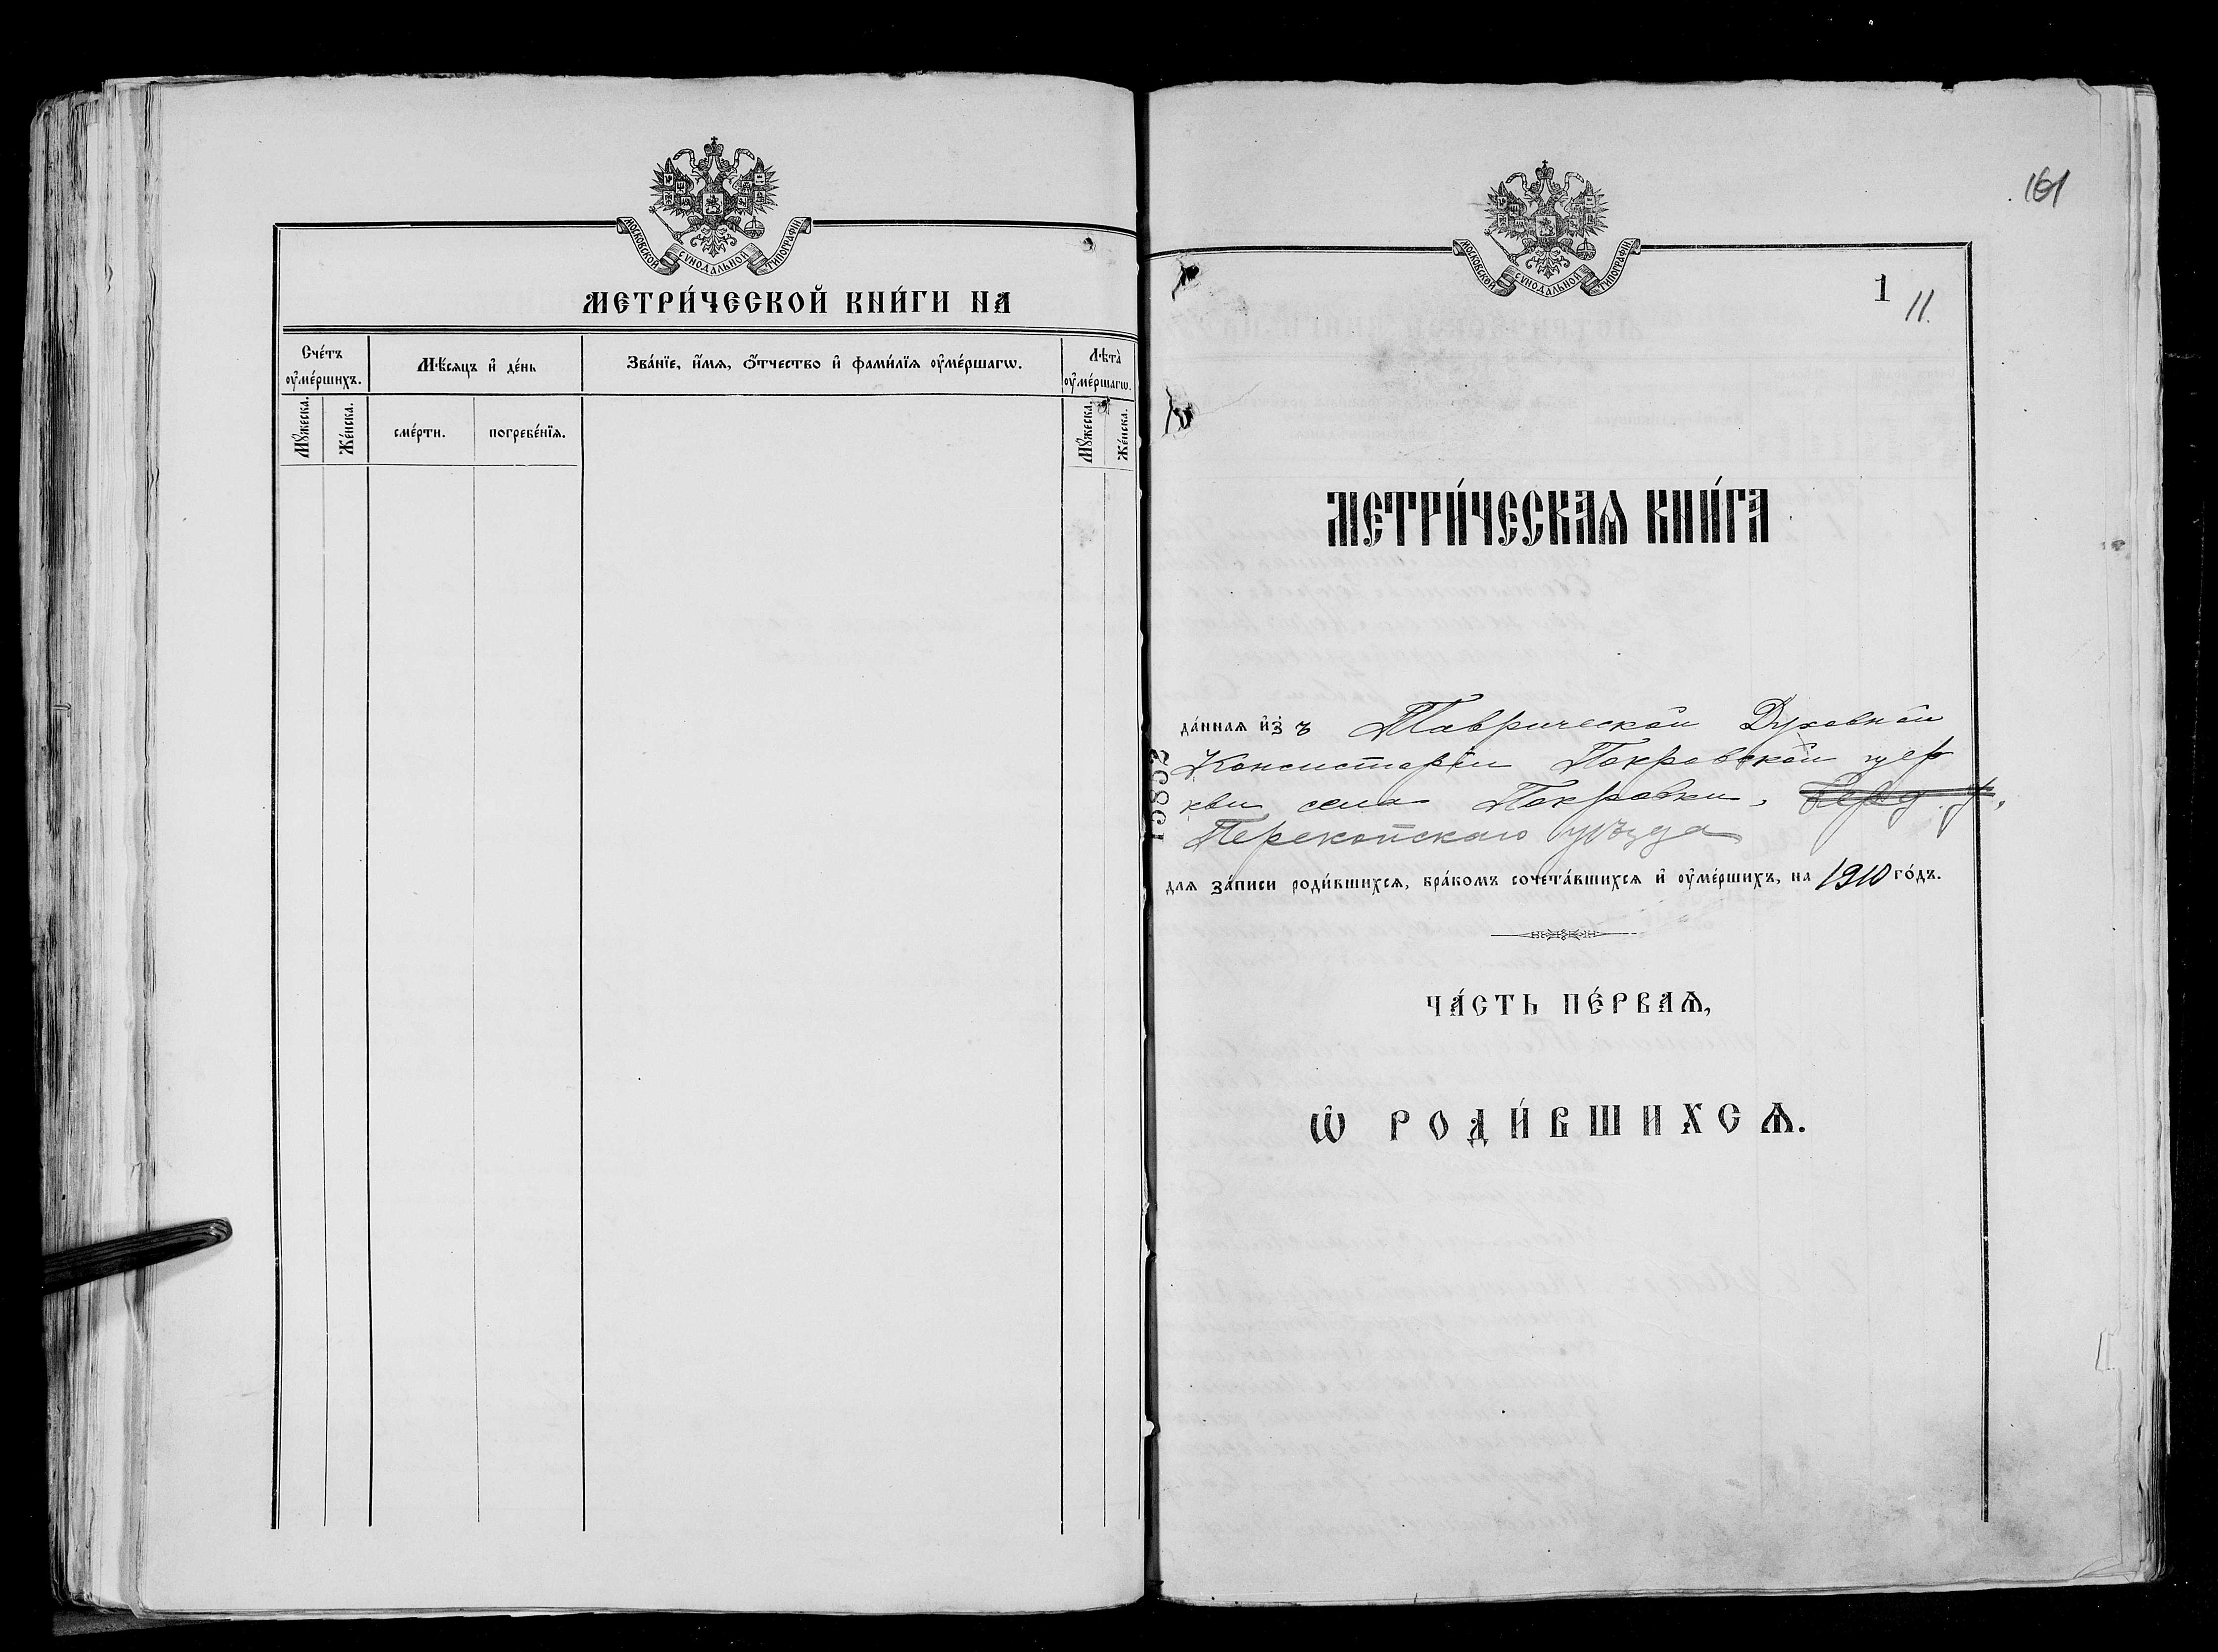 МОСКОВСКОЙ СѴНОДАЛЬНОЙ ТИПОГРАФІИ.
МЕТРИ́ЧЕСКОЙ КНИ́ГИ НА
Сче́тъ ᲂу҆ме́ршихъ.
Мѣ́сѧцъ и҆ де́нь
Зва́нїе, и҆́мѧ, ѻ҆́тчество и҆ фами́лїѧ ᲂу҆ме́ршагѡ.
Лѣта̀ ᲂу҆ме́ршагѡ.
Мꙋ́жеска.
Же́нска.
сме́рти.
погребе́нїѧ.
Мꙋ́жеска.
Же́нска.
161
МОСКОВСКОЙ СѴНОДАЛЬНОЙ ТИПОГРАФІИ.
1
11.
МЕТРИ́ЧЕСКАѦ КНИ́ГА
да́ннаѧ и҆з̾ ъ Таврической Духовной
Консисторіи Покровской цер
кви села Покровки,
Перекопскаго уѣзда
длѧ за́писи роди́вшихсѧ, бра́комъ сочета́вшихсѧ и҆ ᲂу҆ме́ршихъ, на 1910 го́дъ.
ЧА́СТЬ ПЕ́РВАѦ,
Ѡ҆ РОДИ́ВШИХСѦ.